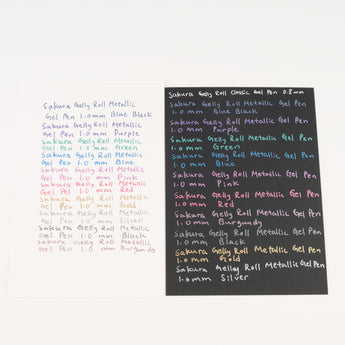 Sakura Gelly Roll Metallic
Gel Pen 1.0 mm Blue Black
Sakura Gelly Roll Metallic
Gel Pen 1.0 mm Purple
Sakura Gelly Roll Metallic
Gel Pen 1.0 mm Green
Sakura Gelly Roll Metallic
Gel Pen 1.0 mm Blue
Sakura Gelly Roll Metallic
Gel Pen 1.0 mm Pink
Sakura Gelly Roll Metallic
Gel Pen 1.0 mm Red
Sakura Gelly Roll Metallic
Gel Pen 1.0 mm Gold
Sakura Gelly Roll Metallic
Gel Pen 1.0 mm Silver
Sakura Gelly Roll Metallic
Gel Pen 1.0 mm Black
Sakura Gelly Roll Metallic
Gel Pen 1.0 mm Burgundy
Sakura Gelly Roll Classic Gel Pen 0.8 mm
Sakura Gelly Roll Metallic Gel Pen
1.0 mm Blue Black
Sakura Gelly Roll Metallic Gel Pen
1.0 mm Purple
Sakura Gelly Roll Metallic Gel Pen
1.0 mm Green
Sakura Gelly Roll Metallic Gel Pen
1.0 mm Blue
Sakura Gelly Roll Metallic Gel Pen
1.0 mm Pink
Sakura Gelly Roll Metallic Gel Pen
1.0 mm Red
Sakura Gelly Roll Metallic Gel Pen
1.0 mm Burgundy
Sakura Gelly Roll Metallic Gel Pen
1.0 mm Black
Sakura Gelly Roll Metallic Gel Pen
1.0 mm Gold
Sakura Gelly Roll Metallic Gel Pen
1.0 mm Silver